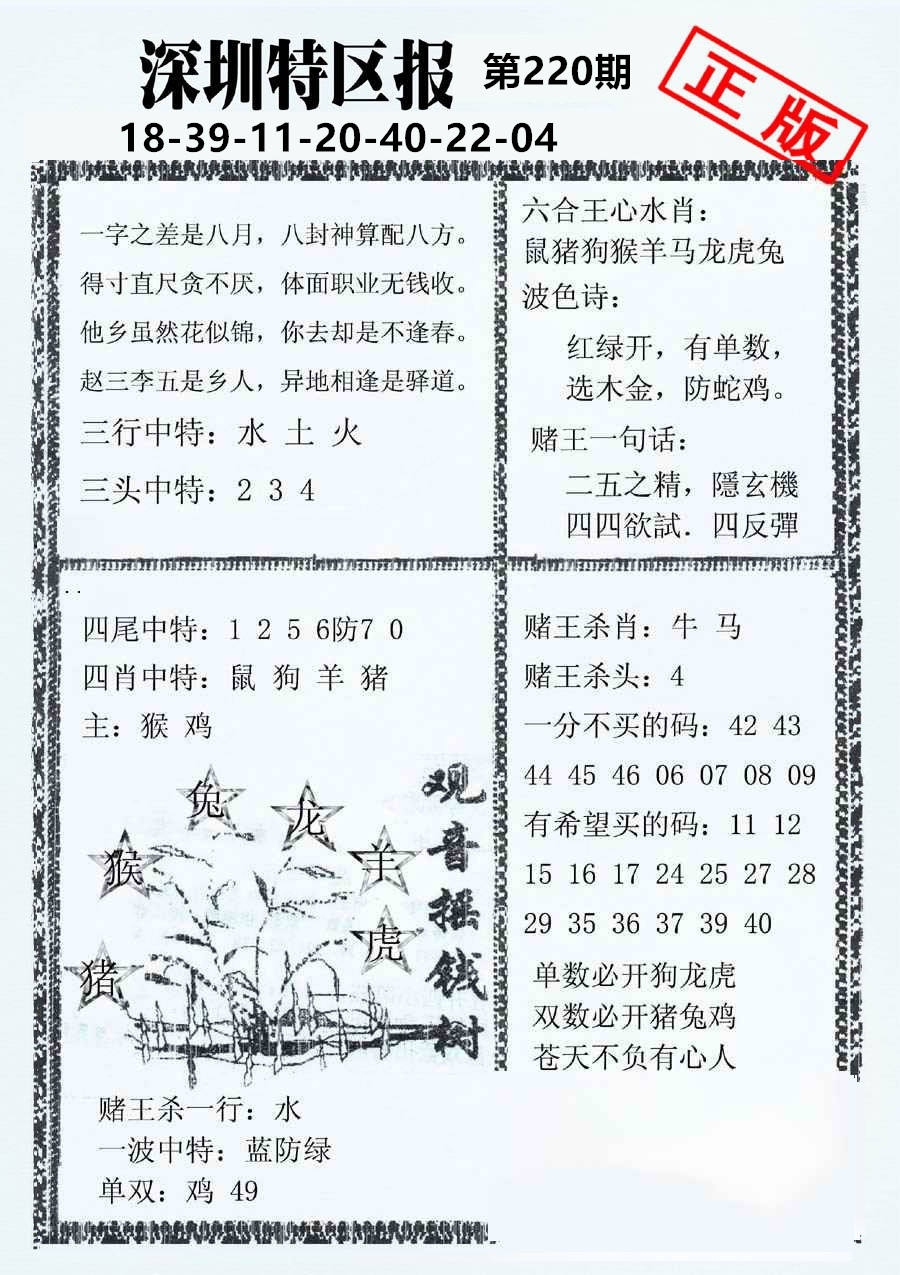 深圳特区报 第220期
正版
18-39-11-20-40-22-04
一字之差是八月，八封神算配八方。
得寸直尺贪不厌，体面职业无钱收。
他乡虽然花似锦，你去却是不逢春。
赵三李五是乡人，异地相逢是驿道。
三行中特：水 土 火
三头中特：2 3 4
六合王心水肖：
鼠猪狗猴羊马龙虎兔
波色诗：
红绿开，有单数，
选木金，防蛇鸡。
赌王一句话：
二五之精，隱玄機
四四欲試．四反彈
四尾中特：1 2 5 6防7 0
四肖中特：鼠 狗 羊 猪
主：猴 鸡
兔
龙
猴
羊
虎
猪
观音摇钱树
赌王杀一行：水
一波中特：蓝防绿
单双：鸡 49
赌王杀肖：牛 马
赌王杀头：4
一分不买的码：42 43
44 45 46 06 07 08 09
有希望买的码：11 12
15 16 17 24 25 27 28
29 35 36 37 39 40
单数必开狗龙虎
双数必开猪兔鸡
苍天不负有心人